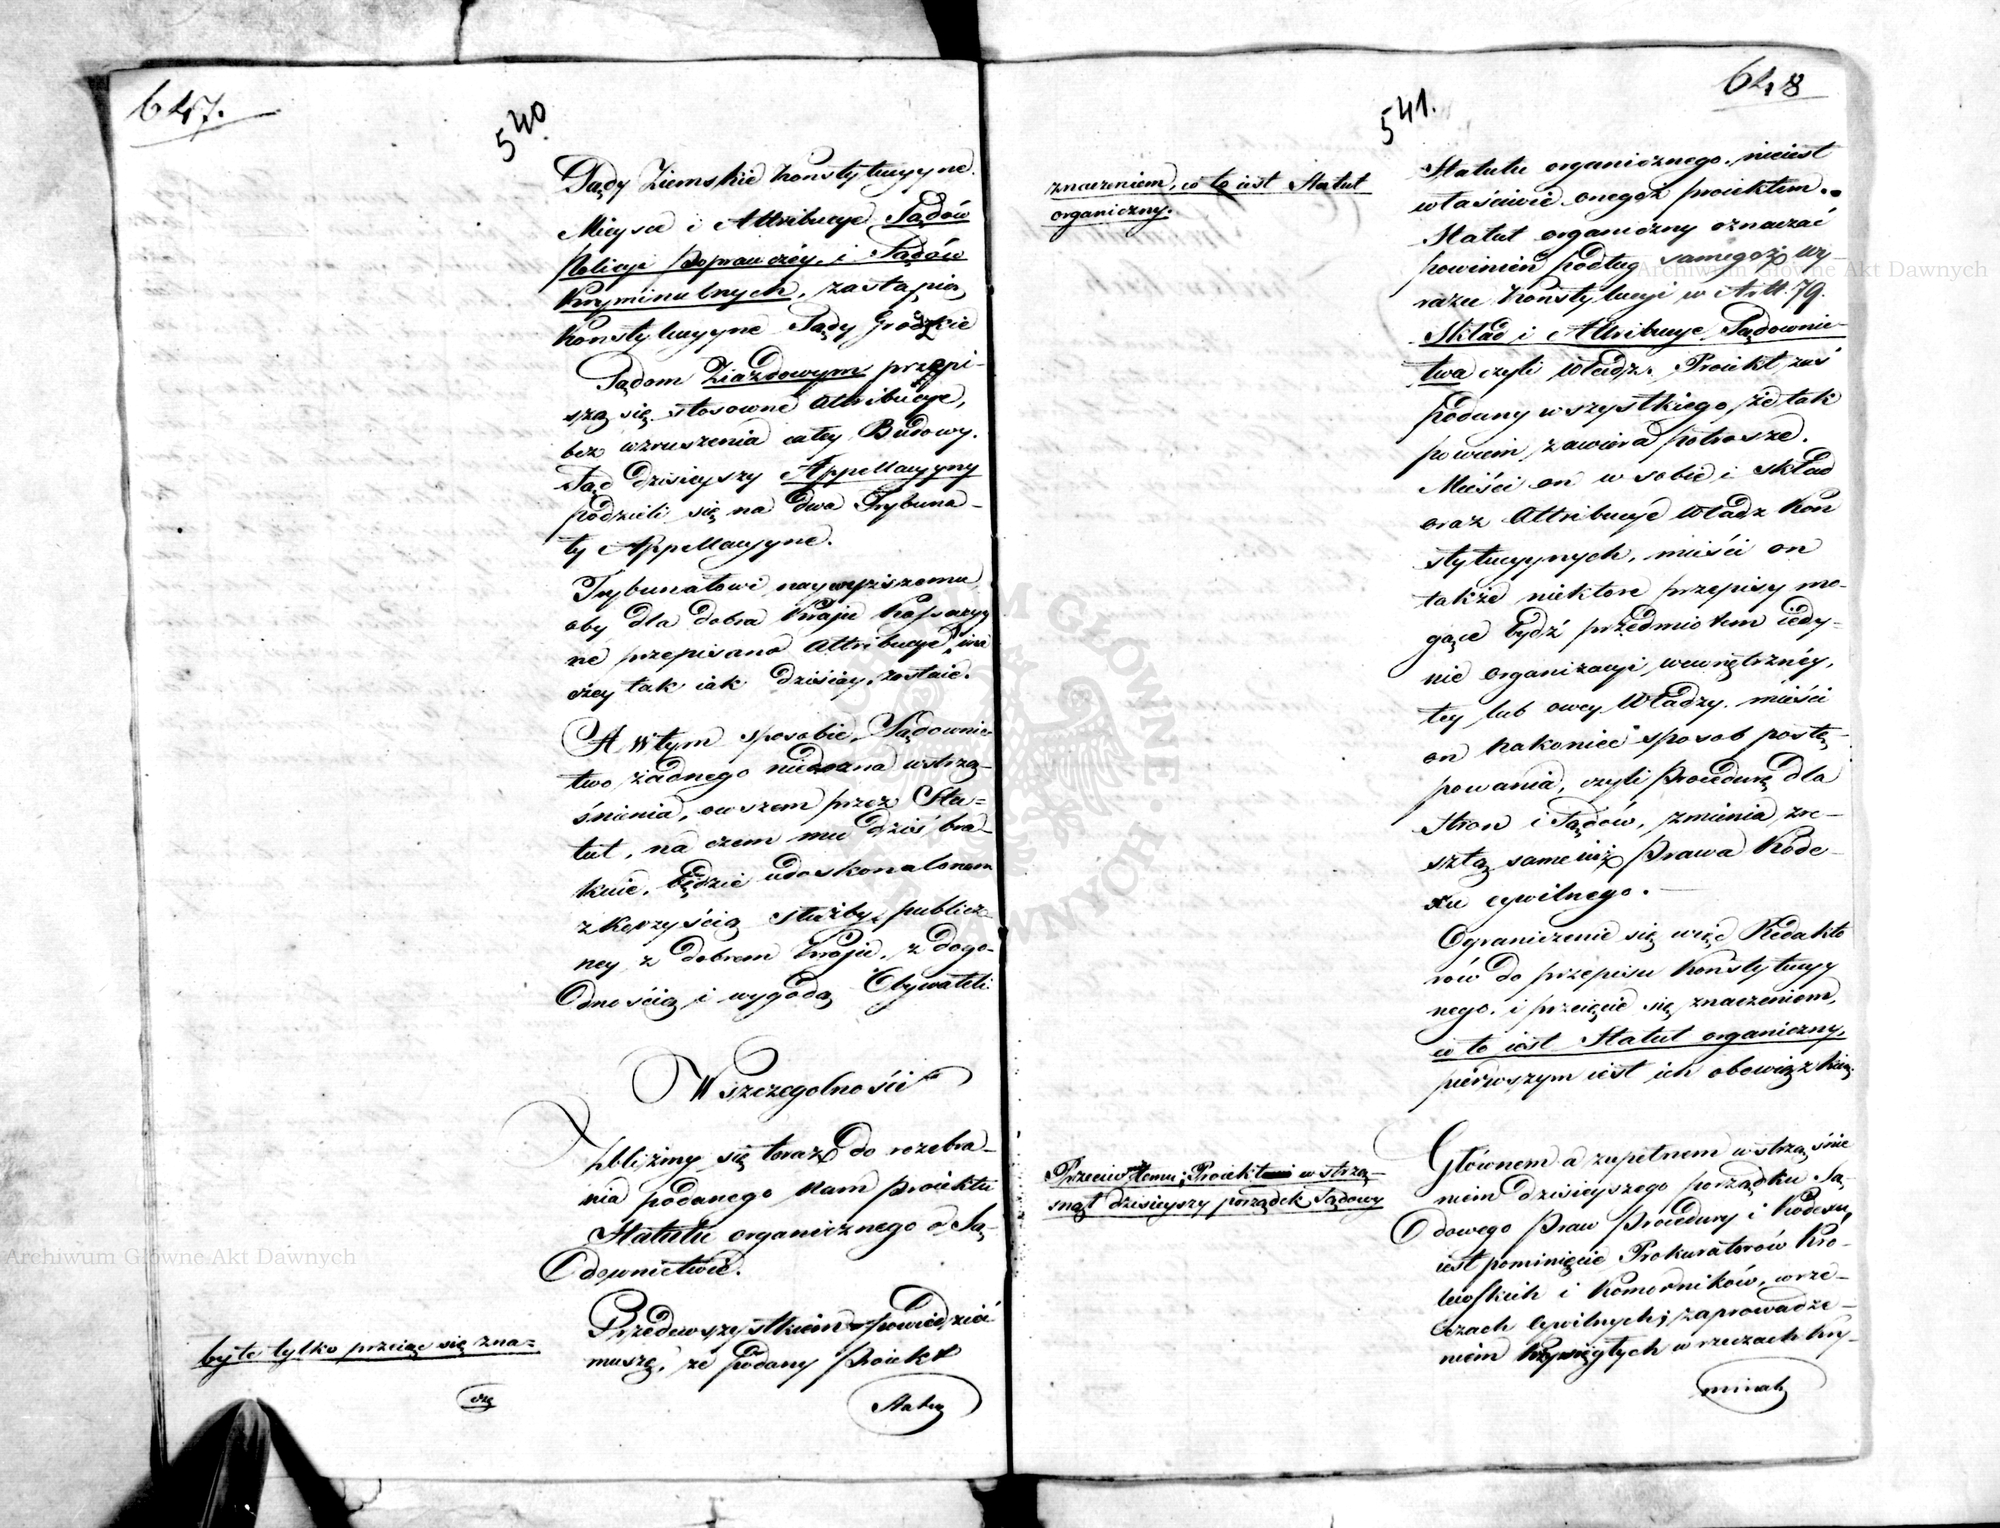 647.
540
Sądy Ziemskie Konstytucyyne.
Mieysce i Attribucye Sądów
Policyi poprawczéy, i Sądów
Kryminalnych, zastąpią
Konstytucyyne Sądy Grodzkie
Sądom Ziazdowym przepi-
szą się stosowne Attribucye,
bez wzruszenia całey Budowy.
Sąd dzisieyszy Appellacyyny
podzieli się na dwa Trybuna-
ły Appellacyyne.
Trybunałowi naywyższemu
oby dla dobra Kraju Kassacyy
ne przepisano Attribucye, ina
czey tak iak dzisiay, zostaie.
A w tym sposobie, Sądownic-
two żadnego niedozna wstrzą-
śnienia, owszem przez Sta-
tut, na czem mu dziś bra-
kuie, będzie udoskonalonem
z korzyścią służby publicz
ney z dobrem Kraju, z dogo-
dnością i wygodą Obywateli.
W szczególności
Zbliżmy się teraz do rozebra-
nia podanego nam Proiektu
Statutu organicznego o Są-
downictwie.
Przedewszystkiem powiedzieć
muszę, że podany Proiekt
byle tylko przeiąć się zna-
cze
Statu
648
541.
znaczeniem, co to iest Statut
organiczny.
Statutu organicznego, nieiest
właściwie onegoż proiektem.
Statut organiczny oznaczać
powinien podług samegoż wy-
razu Konstytucyi w Artt. 79.
Skład i Attribucye Sądownic-
twa czyli Władz. Proiekt zaś
podany wszystkiego, że tak
powiem, zawiera potrosze.
Mieści on w sobie i skład
oraz Attribucye Władz Kon
stytucyynych, mieści on
także niektóre przepisy mo-
gące bydź przedmiotem iedy-
nie organizacyi wewnętrznéy,
tey lub owey Władzy. mieści
on nakoniec sposob postę-
powania, czyli Procedurę dla
Stron i Sądów, zmienia zre-
sztą same iuż Prawa Kode-
xu cywilnego.
Ograniczenie się więc Redakto
rów do przepisu Konstytucyy
nego, i przeięcie się znaczeniem,
co to iest Statut organiczny,
pierwszym iest ich obowiązkiem.
Przeciw temu; Proiekt wstrzą-
snąt dzisieyszy porządek Sądowy
Głównem a zupełnem wstrząśnie
niem dzisieyszego porządku Są-
dowego Praw Procedury i Kodexu,
iest pominięcie Prokuratorów Kró-
lewskich i Komorników, w rze-
czach cywilnych; zaprowadze-
niem Przysięgłych w rzeczach kry-
minal
Archiwum Główne Akt Dawnych
Archiwum Główne Akt Dawnych